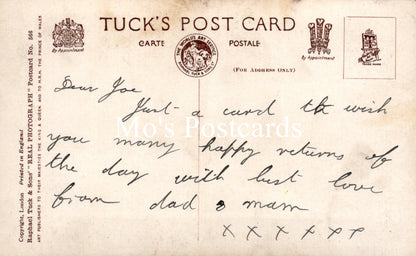 TUCK'S POST CARD
CARTE POSTALE
By Appointment
THE WORLD'S ART SERVICE
(FOR ADDRESS ONLY)
By Appointment
Copyright, London Printed in England
Raphael Tuck & Sons' "REAL PHOTOGRAPH" Postcard No. 566
ART PUBLISHERS TO THEIR MAJESTIES THE KING & QUEEN AND TO H.R.H. THE PRINCE OF WALES
Dear Joe
Just a card to wish
you many happy returns of
the day with best love
from dad & mam
x x x x x x x
Mo's Postcards